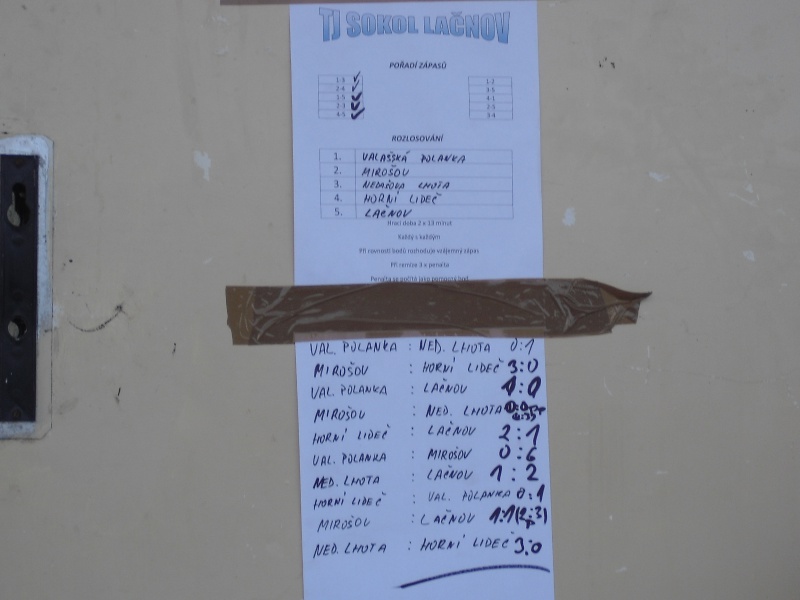 TJ SOKOL LAČNOV
POŘADÍ ZÁPASŮ
1-3 1-2
2-4 3-5
1-5 4-1
2-3 2-5
4-5 3-4
ROZLOSOVÁNÍ
1. VALAŠSKÁ POLANKA
2. MIROŠOV
3. NEDAŠOVA LHOTA
4. HORNÍ LIDEČ
5. LAČNOV
Hrací doba 2 x 13 minut
Každý s každým
Při rovnosti bodů rozhoduje vzájemný zápas.
Při remíze 3 x penalta
Penalta se počítá jako pomocný bod
VAL. POLANKA : NED. LHOTA 0:1
MIROŠOV : HORNÍ LIDEČ 3:0
VAL. POLANKA : LAČNOV :0
MIROŠOV : NED. LHOTA 0:0
HORNÍ LIDEČ : LAČNOV 2:1
VAL. POLANKA : MIROŠOV 0:6
NED. LHOTA : LAČNOV 1:2
HORNÍ LIDEČ : VAL. POLANKA 0:1
MIROŠOV : LAČNOV 1:1 (2:3)
NED. LHOTA : HORNÍ LIDEČ 3:0